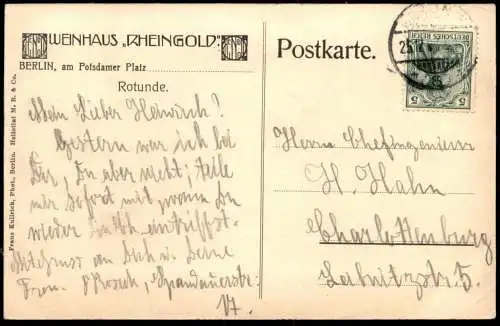 WEINHAUS „RHEINGOLD"
BERLIN, am Potsdamer Platz
Rotunde.
Mein Lieber Heinrich!
Gestern war ich bei
Dir, Du aber nicht; teile
mir sofort mit wann Du
wieder eintriffst.
Mit Gruss an Dich u. Deine
Frau. Spandauerstr.
Franz Kullrich, Phot., Berlin. Heliotint M. R. & Co.
Postkarte.
DEUTSCHES REICH
5 5
25.
Herrn Chefingenieur
H. Hahn
Charlottenburg
Leibnitzstr. 5.